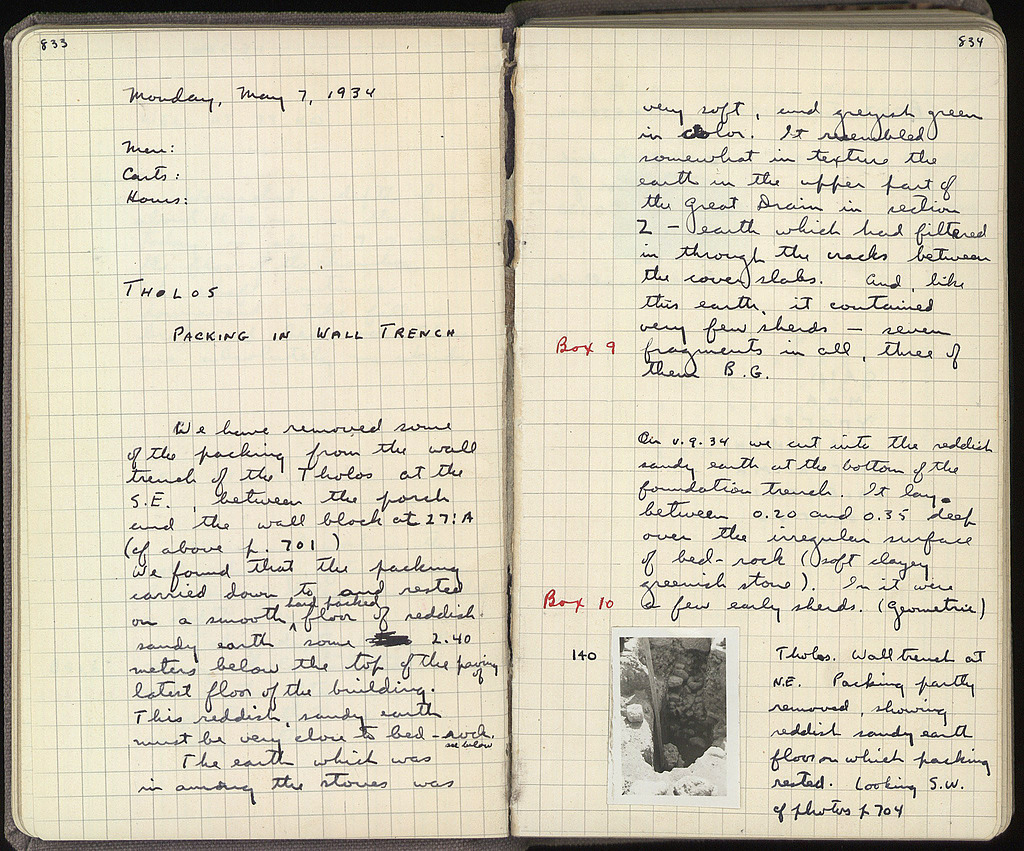 833
Monday, May 7, 1934
Men:
Carts:
Hours:
THOLOS
PACKING IN WALL TRENCH
We have removed some
of the packing from the wall
trench of the Tholos at the
S.E., between the porch
and the wall block at 27:A
(cf above p. 701)
We found that the packing
carried down to and rested
on a smooth, hard packed floor of reddish
sandy earth some 2.40
meters below the top of the paving of
latest floor of the building.
This reddish, sandy earth
must be very close to bed-rock.
see below
The earth which was
in among the stones was
834
very soft, and greyish green
in color. It resembled
somewhat in texture the
earth in the upper part of
the Great Drain in section
Z – earth which had filtered
in through the cracks between
the cover slabs. And, like
this earth, it contained
very few sherds – seven
Box 9 fragments in all, three of
them B.G.
On V.9.34 we cut into the reddish
sandy earth at the bottom of the
foundation trench. It lay
between 0.20 and 0.35 deep
over the irregular surface
of bed-rock (soft clayey
greenish stone). In it were
Box 10 a few early sherds. (Geometric)
140
Tholos. Wall trench at
N.E. Packing partly
removed, showing
reddish sandy earth
floor on which packing
rested. Looking S.W.
cf photos p 704